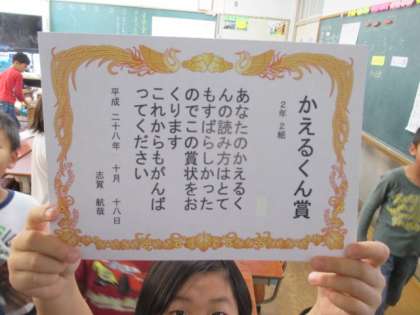 かえるくん賞
2年2組
あなたのかえるく
んの読み方はとて
もすばらしかった
のでこの賞状をお
くります
これからもがんば
ってください
平成 二十八年 十月 十八日
志賀 航哉